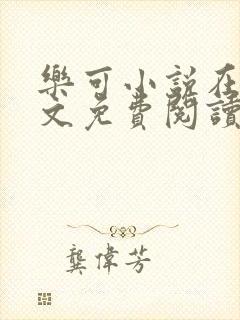 樂可小說在
文免費閱讀
龔偉芳